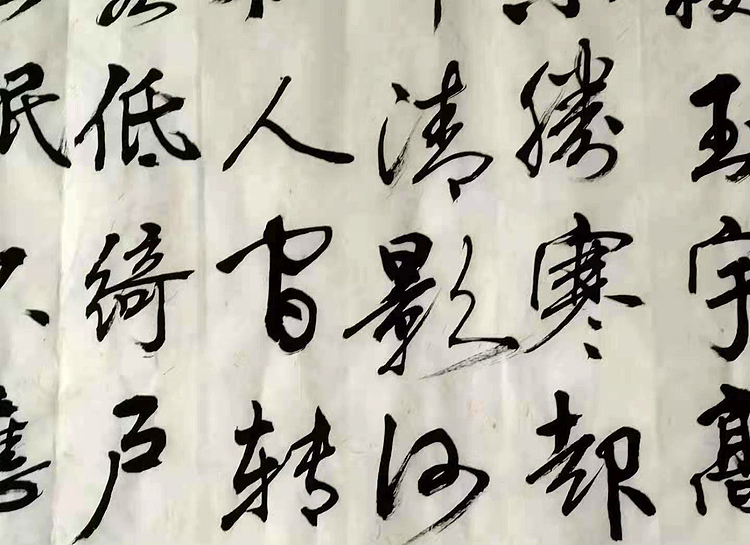 玉宇高
勝寒起
清影何
人間转
低綺户
眠不